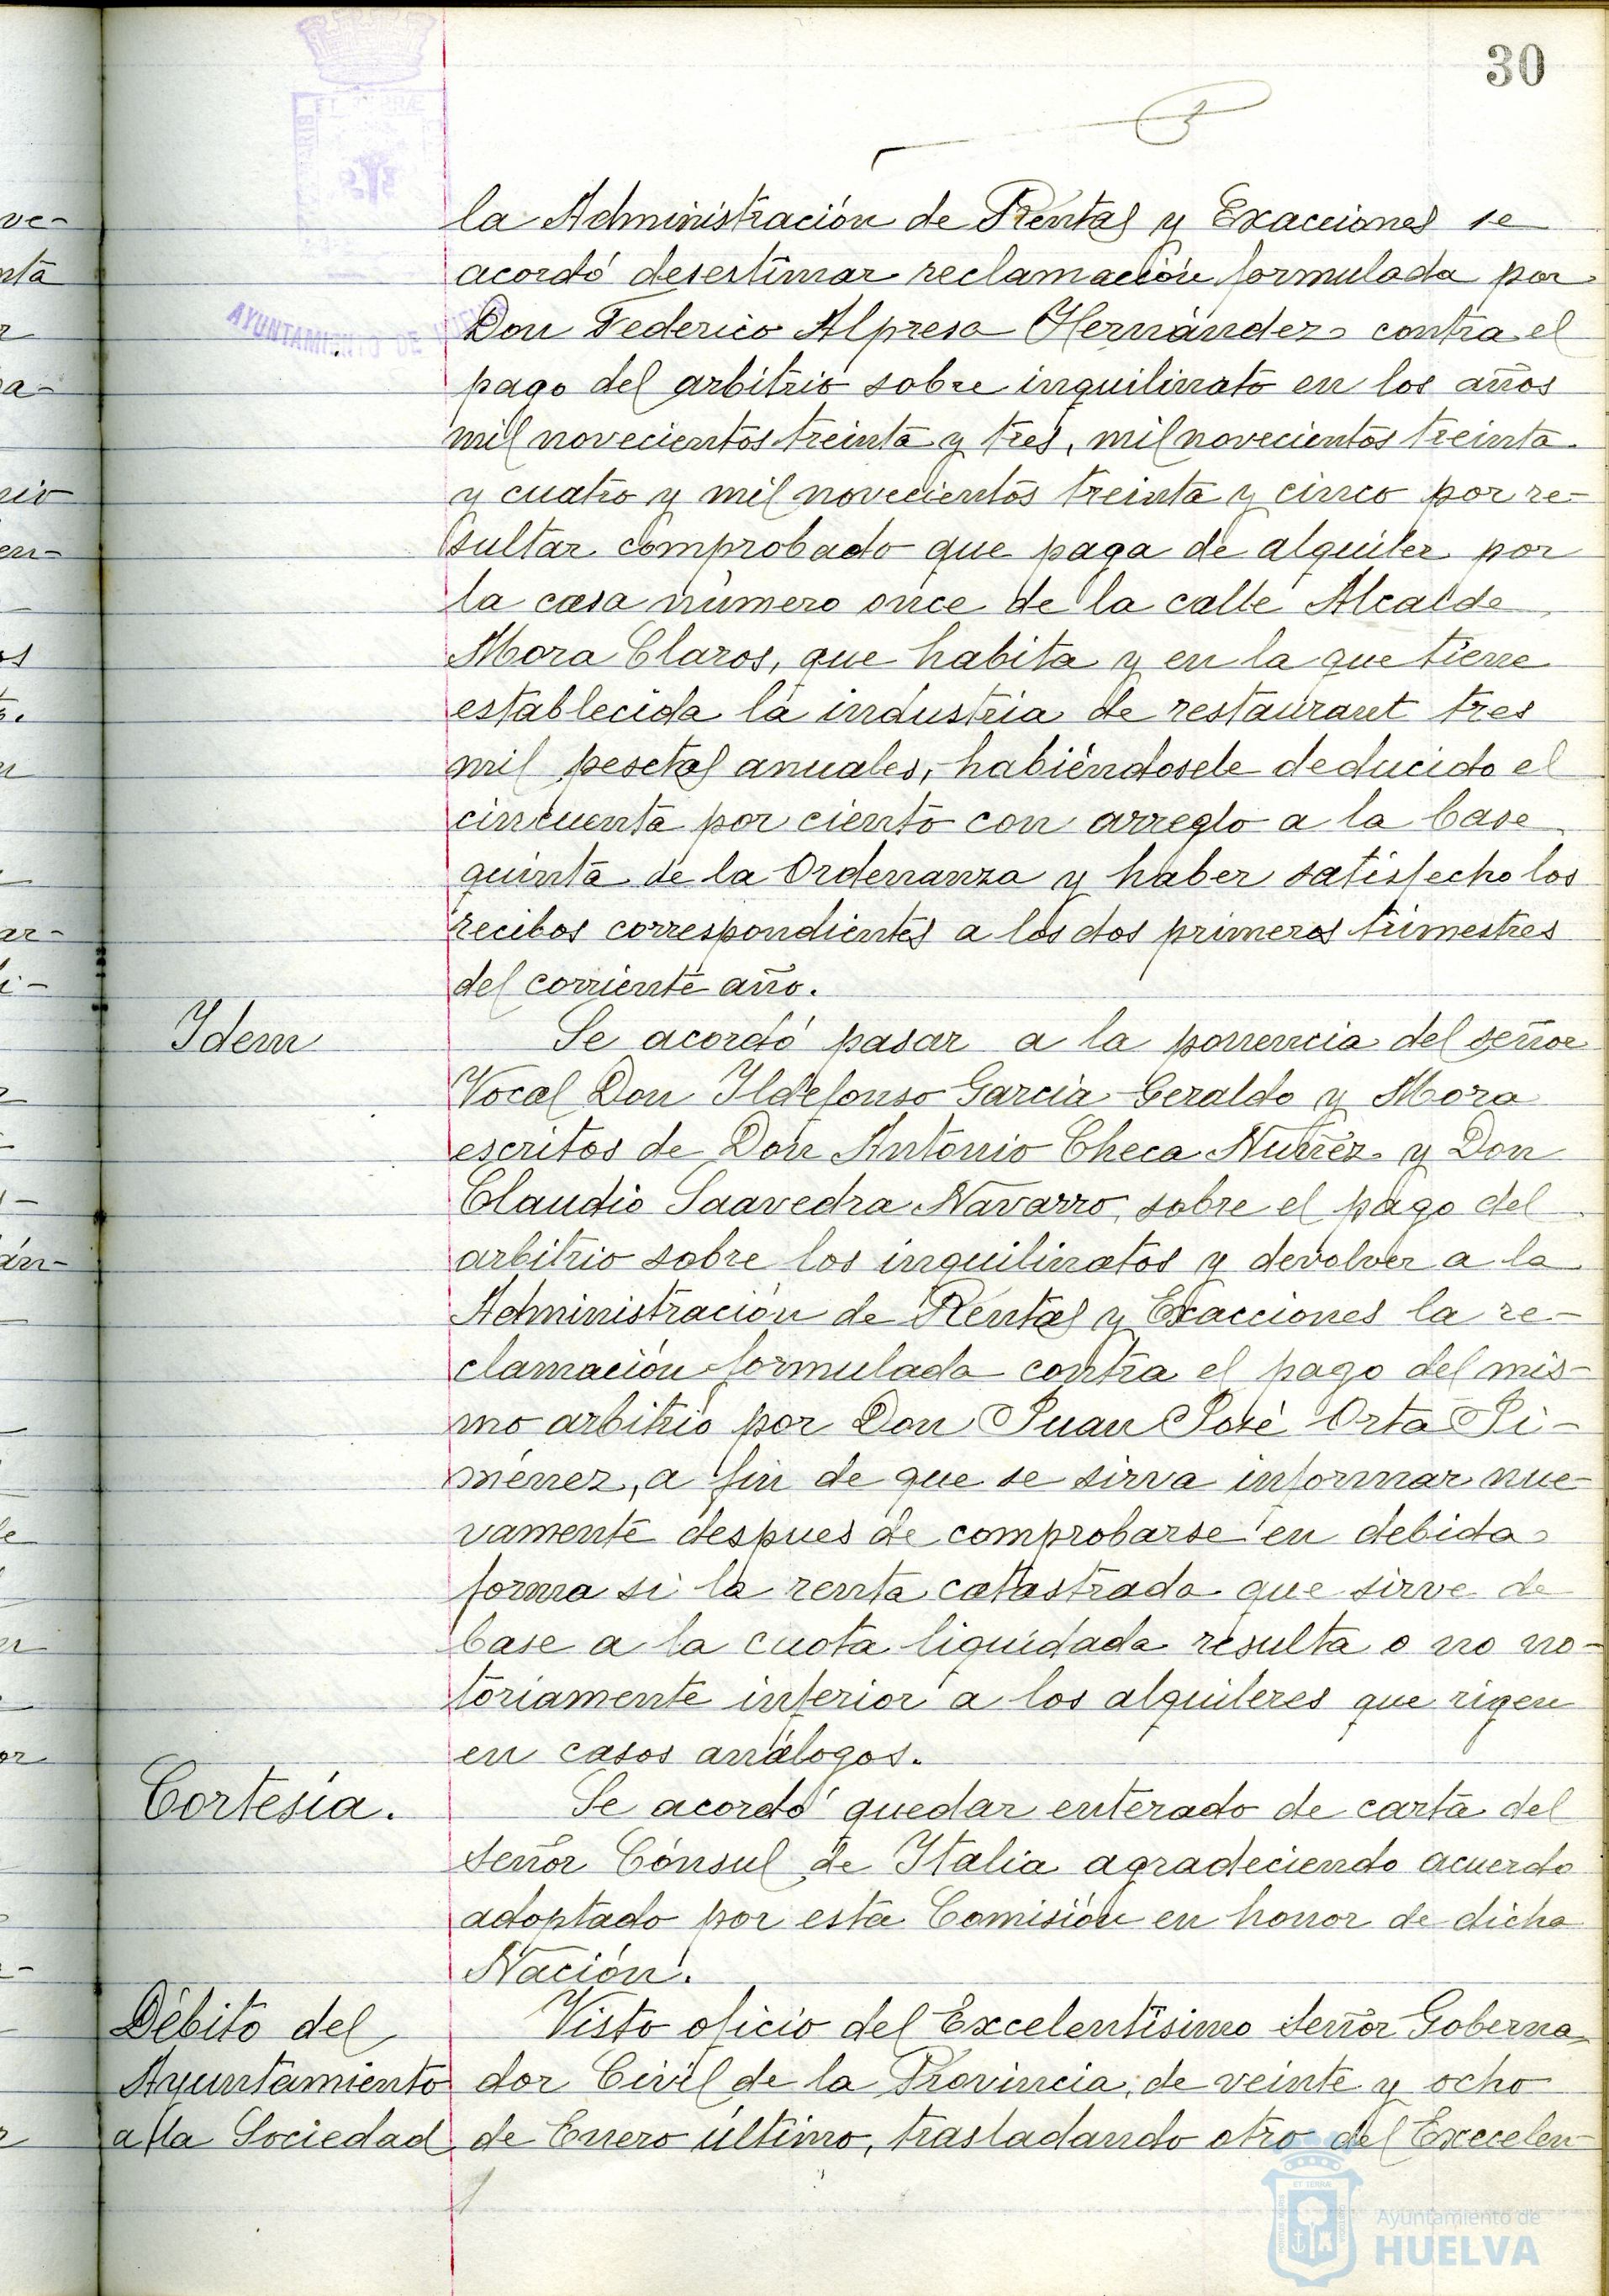 30
la Administración de Rentas y Exacciones se
acordó desestimar reclamación formulada por
Don Federico Alpresa Hernández contra el
pago del arbitrio sobre inquilinato en los años
mil novecientos treinta y tres, mil novecientos treinta
y cuatro y mil novecientos treinta y cinco por re-
sultar comprobado que paga de alquiler por
la casa número once de la calle Alcalde
Mora Claros, que habita y en la que tiene
establecida la industria de restaurant tres
mil pesetas anuales, habiéndosele deducido el
cincuenta por ciento con arreglo a la base
quinta de la Ordenanza y haber satisfecho los
recibos correspondientes a los dos primeros trimestres
del corriente año.
Idem
Se acordó pasar a la ponencia del señor
Vocal Don Ildefonso García Geraldo y Mora
escritos de Don Antonio Checa Nuñez y Don
Claudio Saavedra Navarro, sobre el pago del
arbitrio sobre los inquilinatos y devolver a la
Administración de Rentas y Exacciones la re-
clamación formulada contra el pago del mis-
mo arbitrio por Don Juan José Orta Ji-
ménez, a fin de que se sirva informar nue-
vamente despues de comprobarse en debida
forma si la renta catastrada que sirve de
base a la cuota liquidada resulta o no no-
toriamente inferior a los alquileres que rigen
en casos análogos.
Cortesía.
Se acordó quedar enterado de carta del
Señor Cónsul de Italia agradeciendo acuerdo
adoptado por esta Comisión en honor de dicha
Nación.
Débito del
Ayuntamiento
a la Sociedad
Visto oficio del Excelentísimo Señor Goberna-
dor Civil de la Provincia, de veinte y ocho
de Enero último, trasladando otro del Excelen-
AYUNTAMIENTO DE
Ayuntamiento de
HUELVA